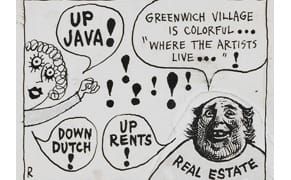 UP
JAVA!
GREENWICH VILLAGE
IS COLORFUL...
"WHERE THE ARTISTS
LIVE..."!
! ! ! ! ! !
DOWN
DUTCH!
UP
RENTS!
REAL ESTATE
R